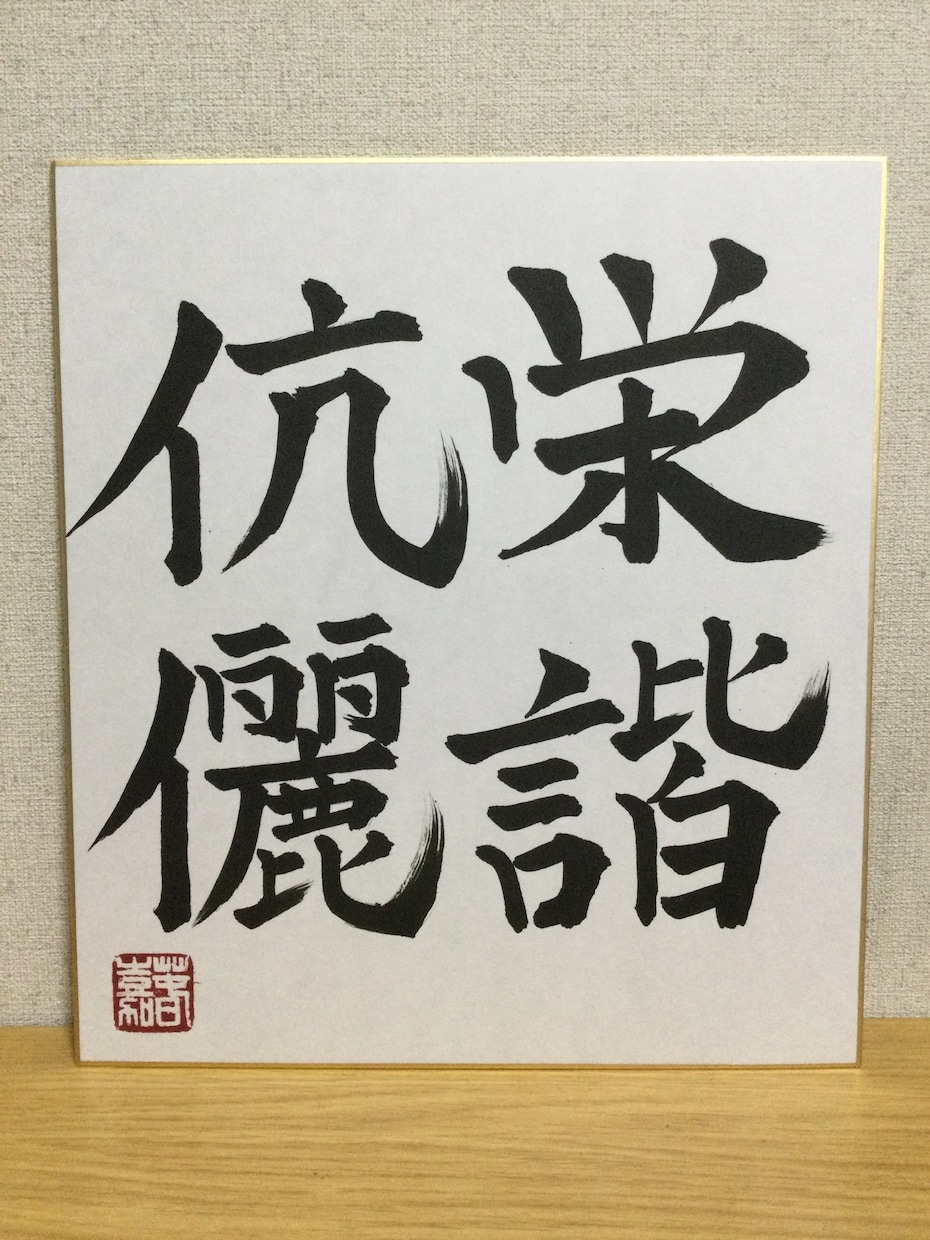 栄諧
伉儷